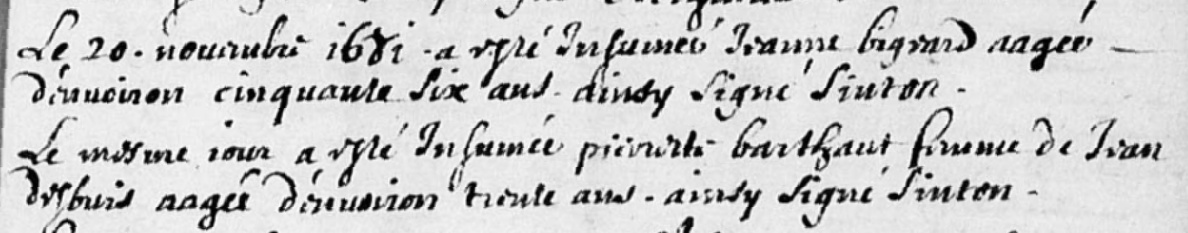 Le 20. novembre 1681 a esté Inhumée Jeanne bigeard aagée
d'environ cinquante six ans. ainsy signé Sinton.
Le mesme iour a esté Inhumée pierrette barthaut femme de Jean
desbuis aagée d'environ trente ans. ainsy signé Sinton.